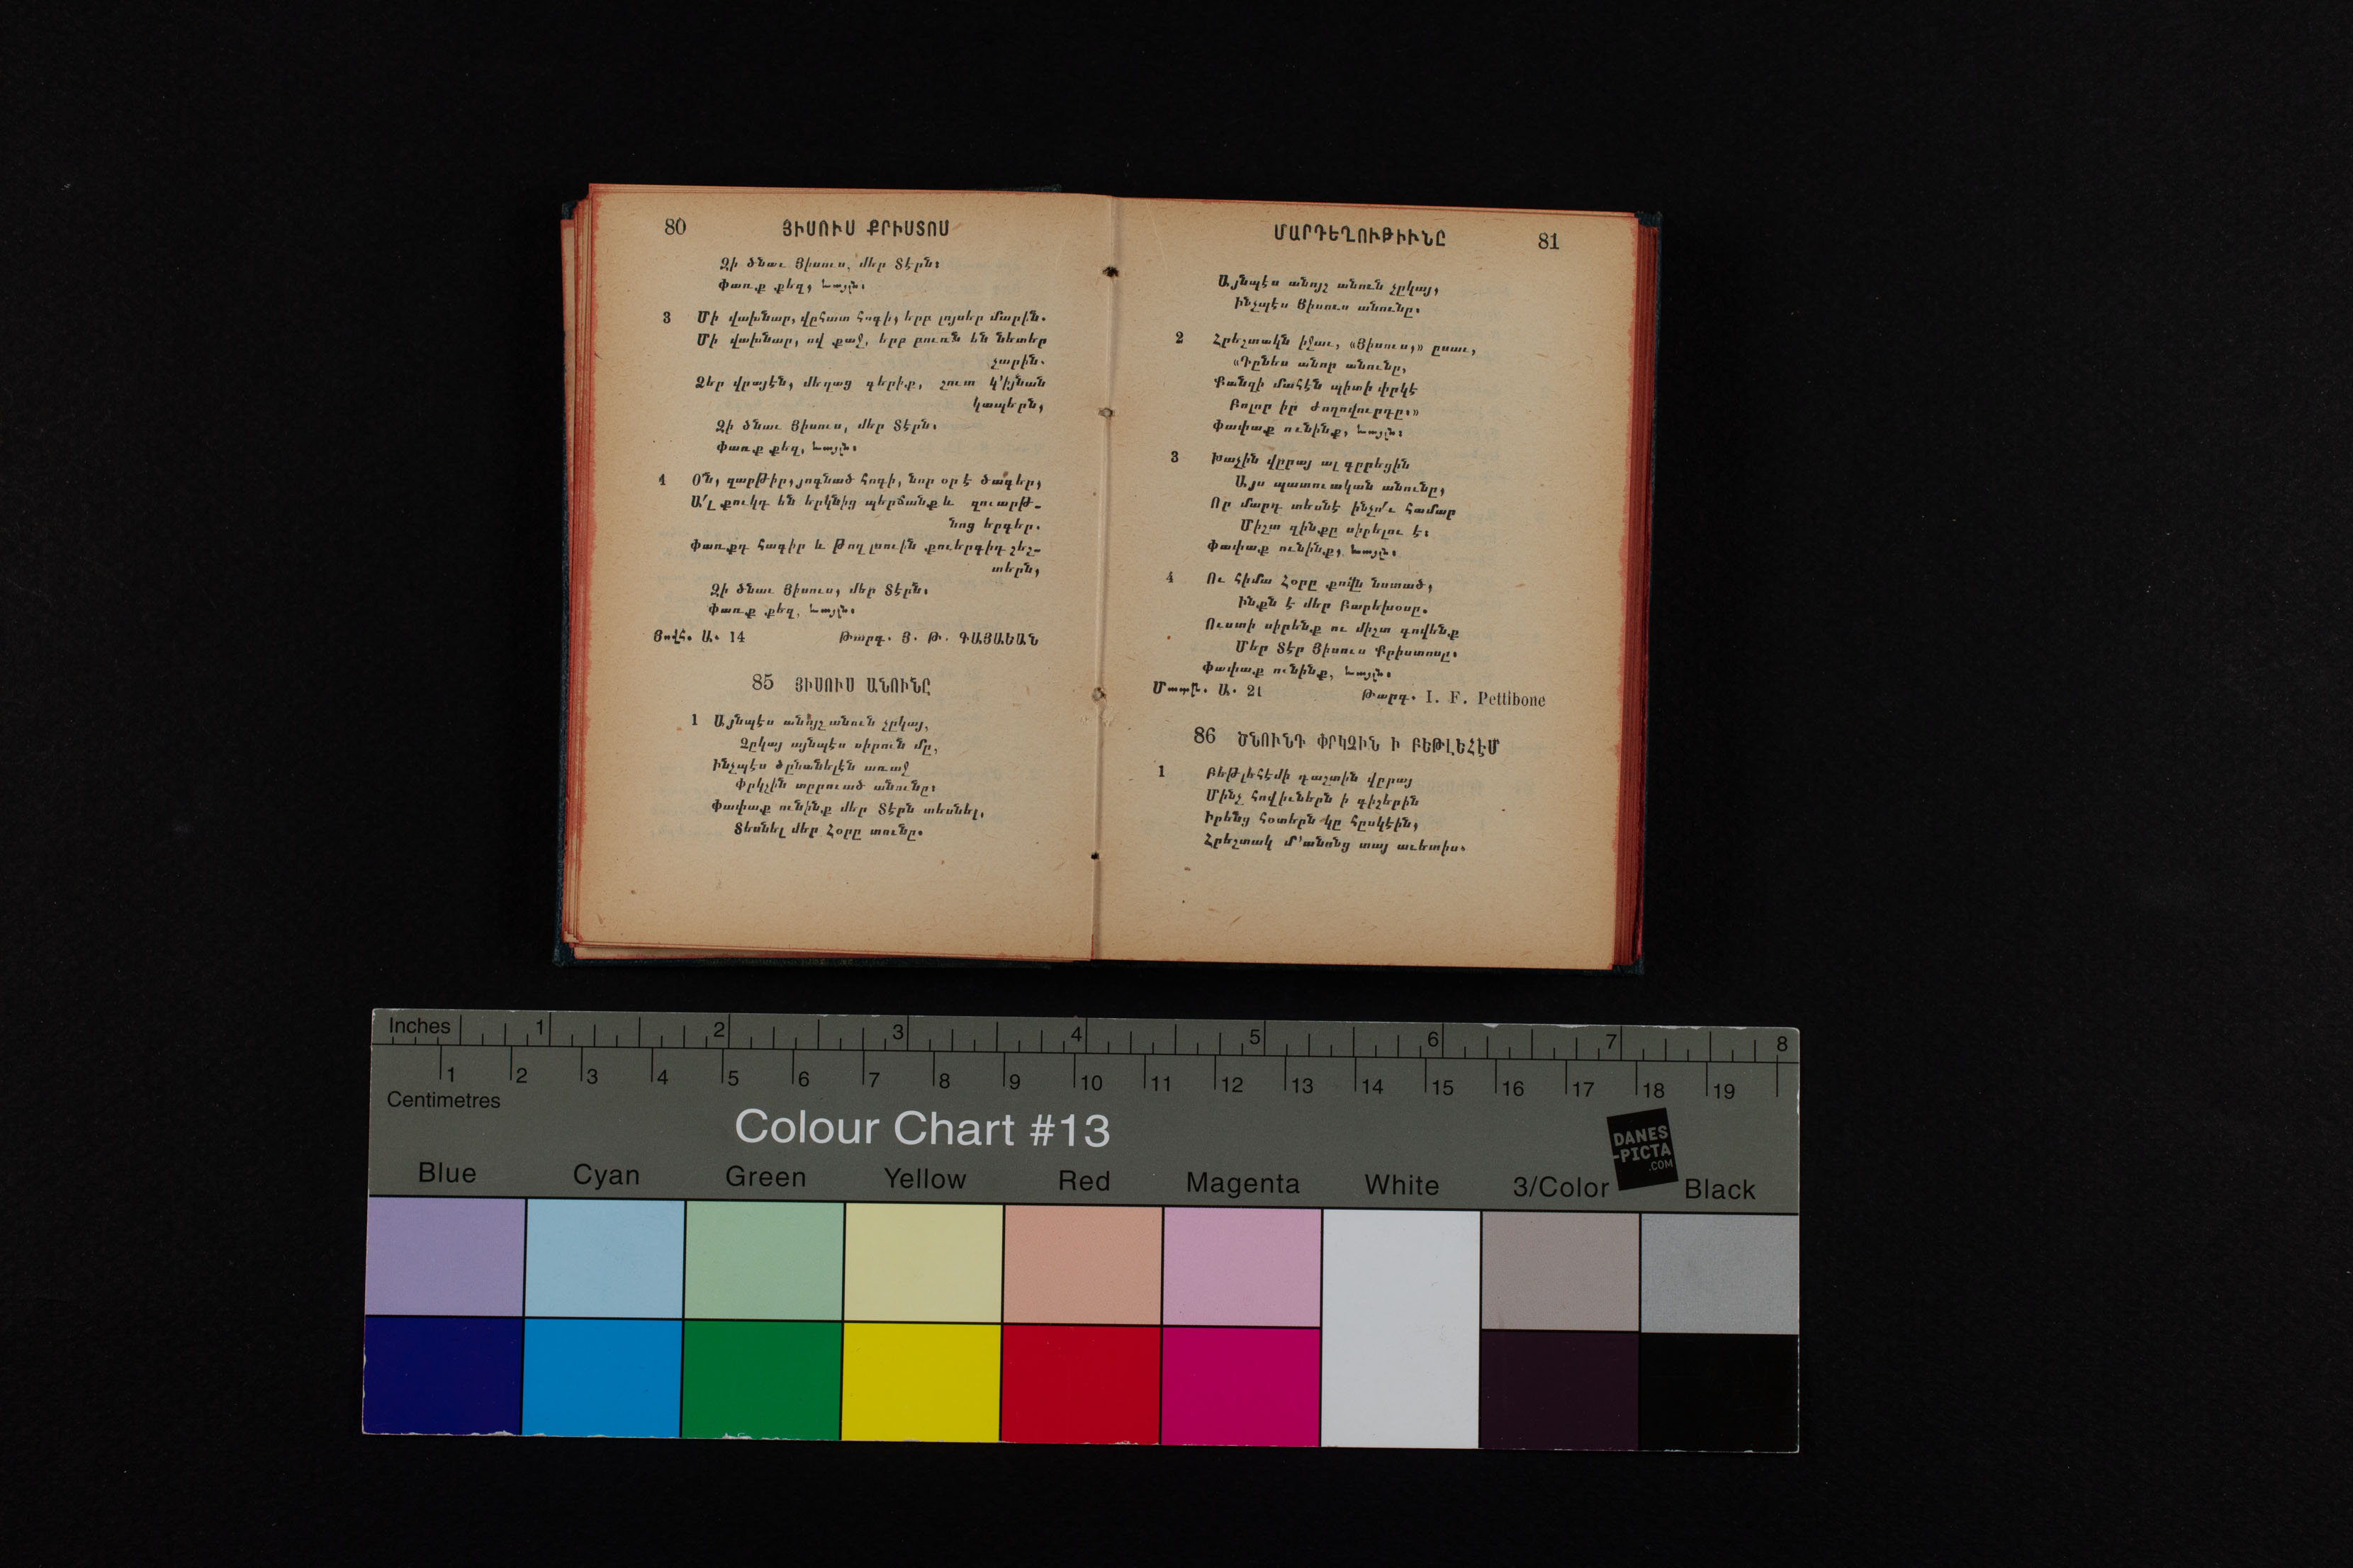 80 ՅԻՍՈՒՍ ՔՐԻՍՏՈՍ
Զի ծնաւ Յիսուս, մեր Տէրն։
Փառք քեզ, ևայլն։
3 Մի վախնար, վըհատ հոգի, երբ լոյսեր մարին.
Մի վախնար, ով քաջ, երբ բուռն են նետեր
չարին.
Ձեր վրայէն, մեղաց գերիք, շուտ կ'իյնան
կապերն,
Զի ծնաւ Յիսուս, մեր Տէրն։
Փառք քեզ, ևայլն։
4 Օ՜ն, զարթիր, յոգնած հոգի, նոր օր է ծագեր,
Ա՛լ քուկդ են երկնից պերճանք և զուարթ-
նոց երգեր.
Փառքդ հագիր և թող լսուին քու երգիդ շեշ-
տերն,
Զի ծնաւ Յիսուս, մեր Տէրն։
Փառք քեզ, ևայլն։
Յովհ. Ա. 14 Թարգ. Յ. Թ. ԳԱՅԱՅԵԱՆ
85 ՅԻՍՈՒՍ ԱՆՈՒՆԸ
1 Այնպէս անոյշ անուն չըկայ,
Չըկայ այնպէս սիրուն մը,
Ինչպէս ծընանելէն առաջ
Փրկչին տըրուած անունը։
Փափաք ունինք մեր Տէրն տեսնել,
Տեսնել մեր Հօրը տունը.
ՄԱՐԴԵՂՈՒԹԻՒՆԸ 81
Այնպէս անոյշ անուն չըկայ,
Ինչպէս Յիսուս անունը։
2 Հրեշտակն իջաւ, «Յիսուս,» ըսաւ,
«Դընես անոր անունը,
Քանզի մահէն պիտի փրկէ
Բոլոր իր ժողովուրդը։»
Փափաք ունինք, ևայլն։
3 Խաչին վըրայ ալ գըրեցին
Այս պատուական անունը,
Որ մարդ տեսնէ ինչո՛ւ համար
Միշտ զինքը սիրելու է։
Փափաք ունինք, ևայլն։
4 Ու հիմա Հօրը քովն նստած,
Ինքն է մեր Բարեխօսը.
Ուստի սիրենք ու միշտ գովենք
Մեր Տէր Յիսուս Քրիստոսը։
Փափաք ունինք, ևայլն։
Մատթ. Ա. 21 Թարգ. I. F. Pettibone
86 ԾՆՈՒՆԴ ՓՐԿՉԻՆ Ի ԲԵԹԼԵՀԷՄ
1 Բեթլեհէմի դաշտին վըրայ
Մինչ հովիւներն ի գիշերին
Իրենց հօտերն կը հըսկէին,
Հրեշտակ մ'անոնց տայ աւետիս.
Inches 1 2 3 4 5 6 7 8
1 2 3 4 5 6 7 8 9 10 11 12 13 14 15 16 17 18 19
Centimetres
Colour Chart #13
DANES
-PICTA
.COM
Blue Cyan Green Yellow Red Magenta White 3/Color Black